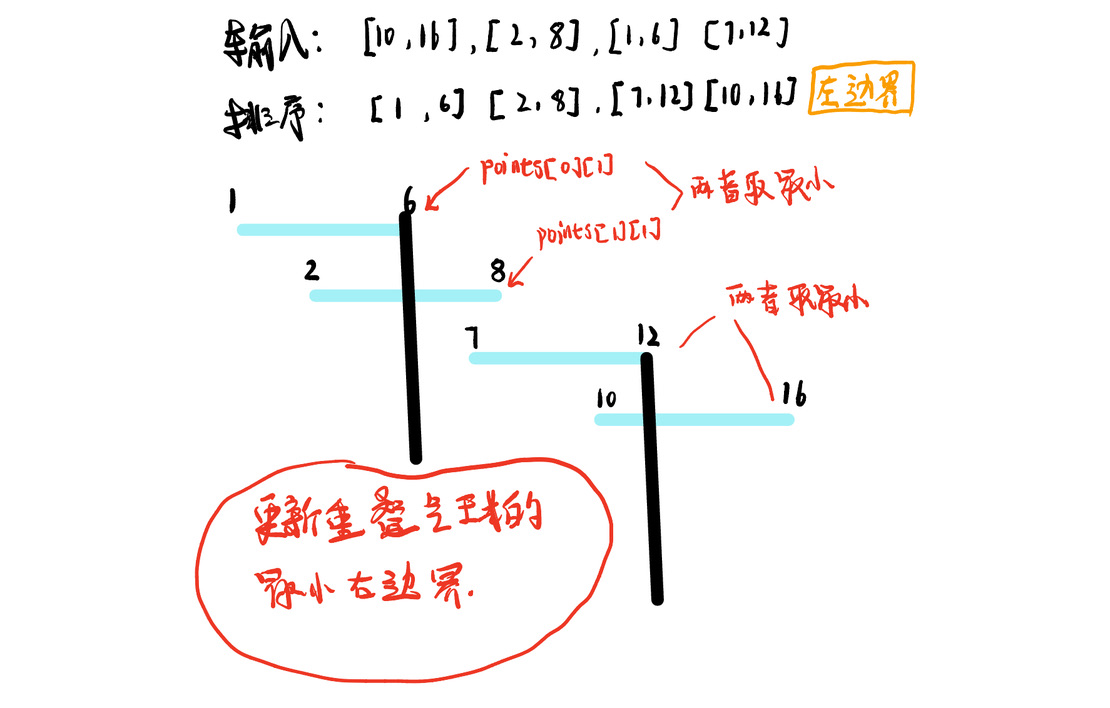 输入： [10,16],[2,8],[1,6] [7,12]
排序： [1,6] [2,8],[7,12][10,16] 左边界
points[0][1]
两者取最小
1 6
points[1][1]
2 8
两者取最小
7 12
10 16
更新重叠气球的
最小右边界.